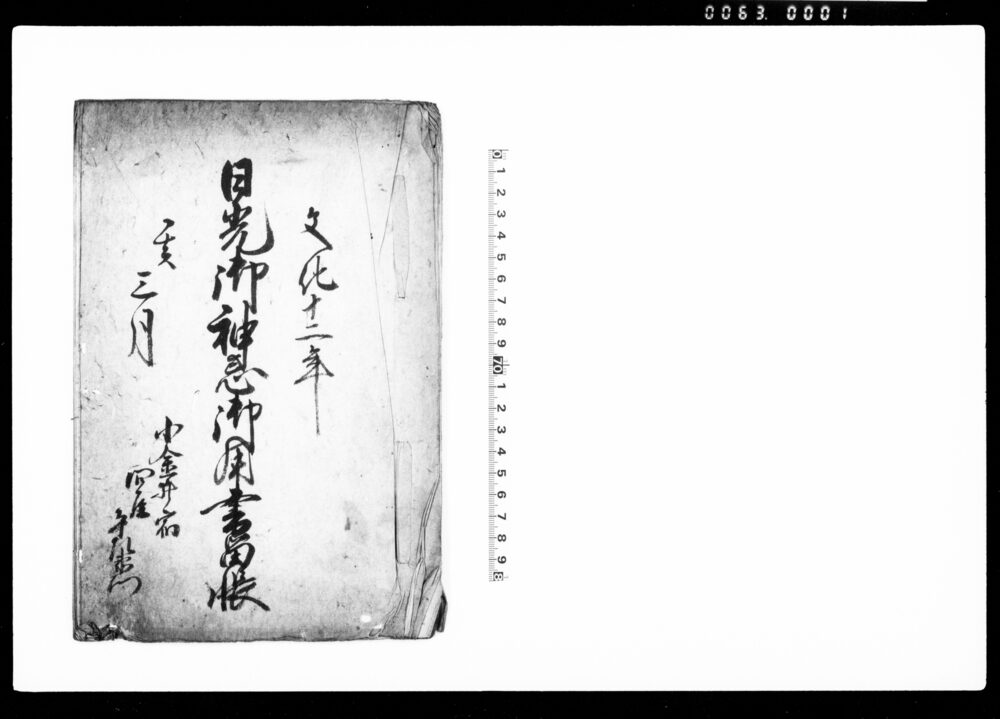 0063. 0001
文化十二年
日光御神忌御用書留帳
亥
三月
小金井宿
問屋
0 1 2 3 4 5 6 7 8 9 10 1 2 3 4 5 6 7 8 9